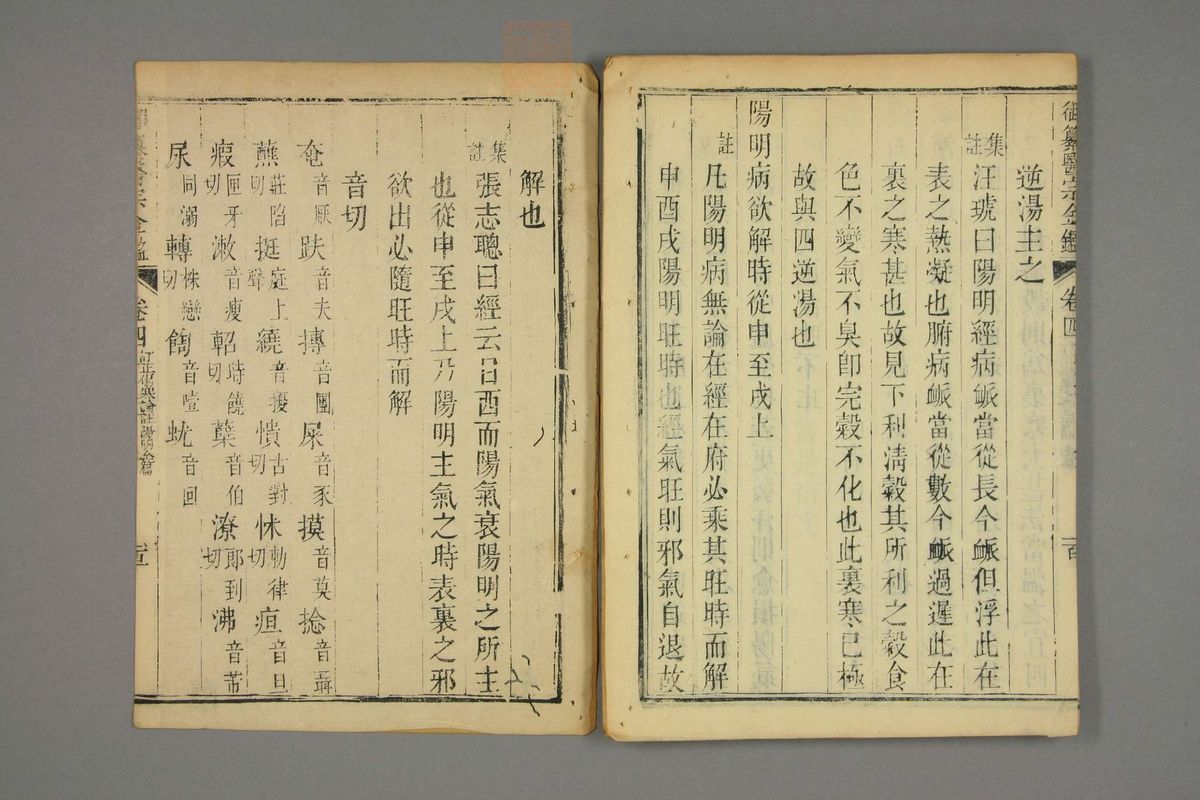 御纂醫宗金鑑 卷四
逆湯主之
集註汪琥曰陽明經病脈當從長今脈但浮此在
表之熱凝也腑病脈當從數今脈過遲此在
裏之寒甚也故見下利清穀其所利之穀食
色不變氣不臭卽完穀不化也此裏寒已極
故與四逆湯也
陽明病欲解時從申至戌上
註凡陽明病無論在經在府必乘其旺時而解
申酉戌陽明旺時也經氣旺則邪氣自退故
解也
集註張志聰曰經云日西而陽氣衰陽明之所主
也從申至戌上乃陽明主氣之時表裏之邪
欲出必隨旺時而解
音切
奄音厭 趺音夫 摶音團 屎音豕 摸音莫 捻音聶
蘸莊陷切 挺庭上聲 繞音擾 憒古對切 怵勅律切 疸音旦
瘕匣牙切 漱音瘦 軺時饒切 蘗音伯 潦郎到切 沸音芾
尿同溺 轉株戀切 餲音噎 蚘音回
御纂醫宗金鑑 卷四 訂正傷寒論註陽明全篇